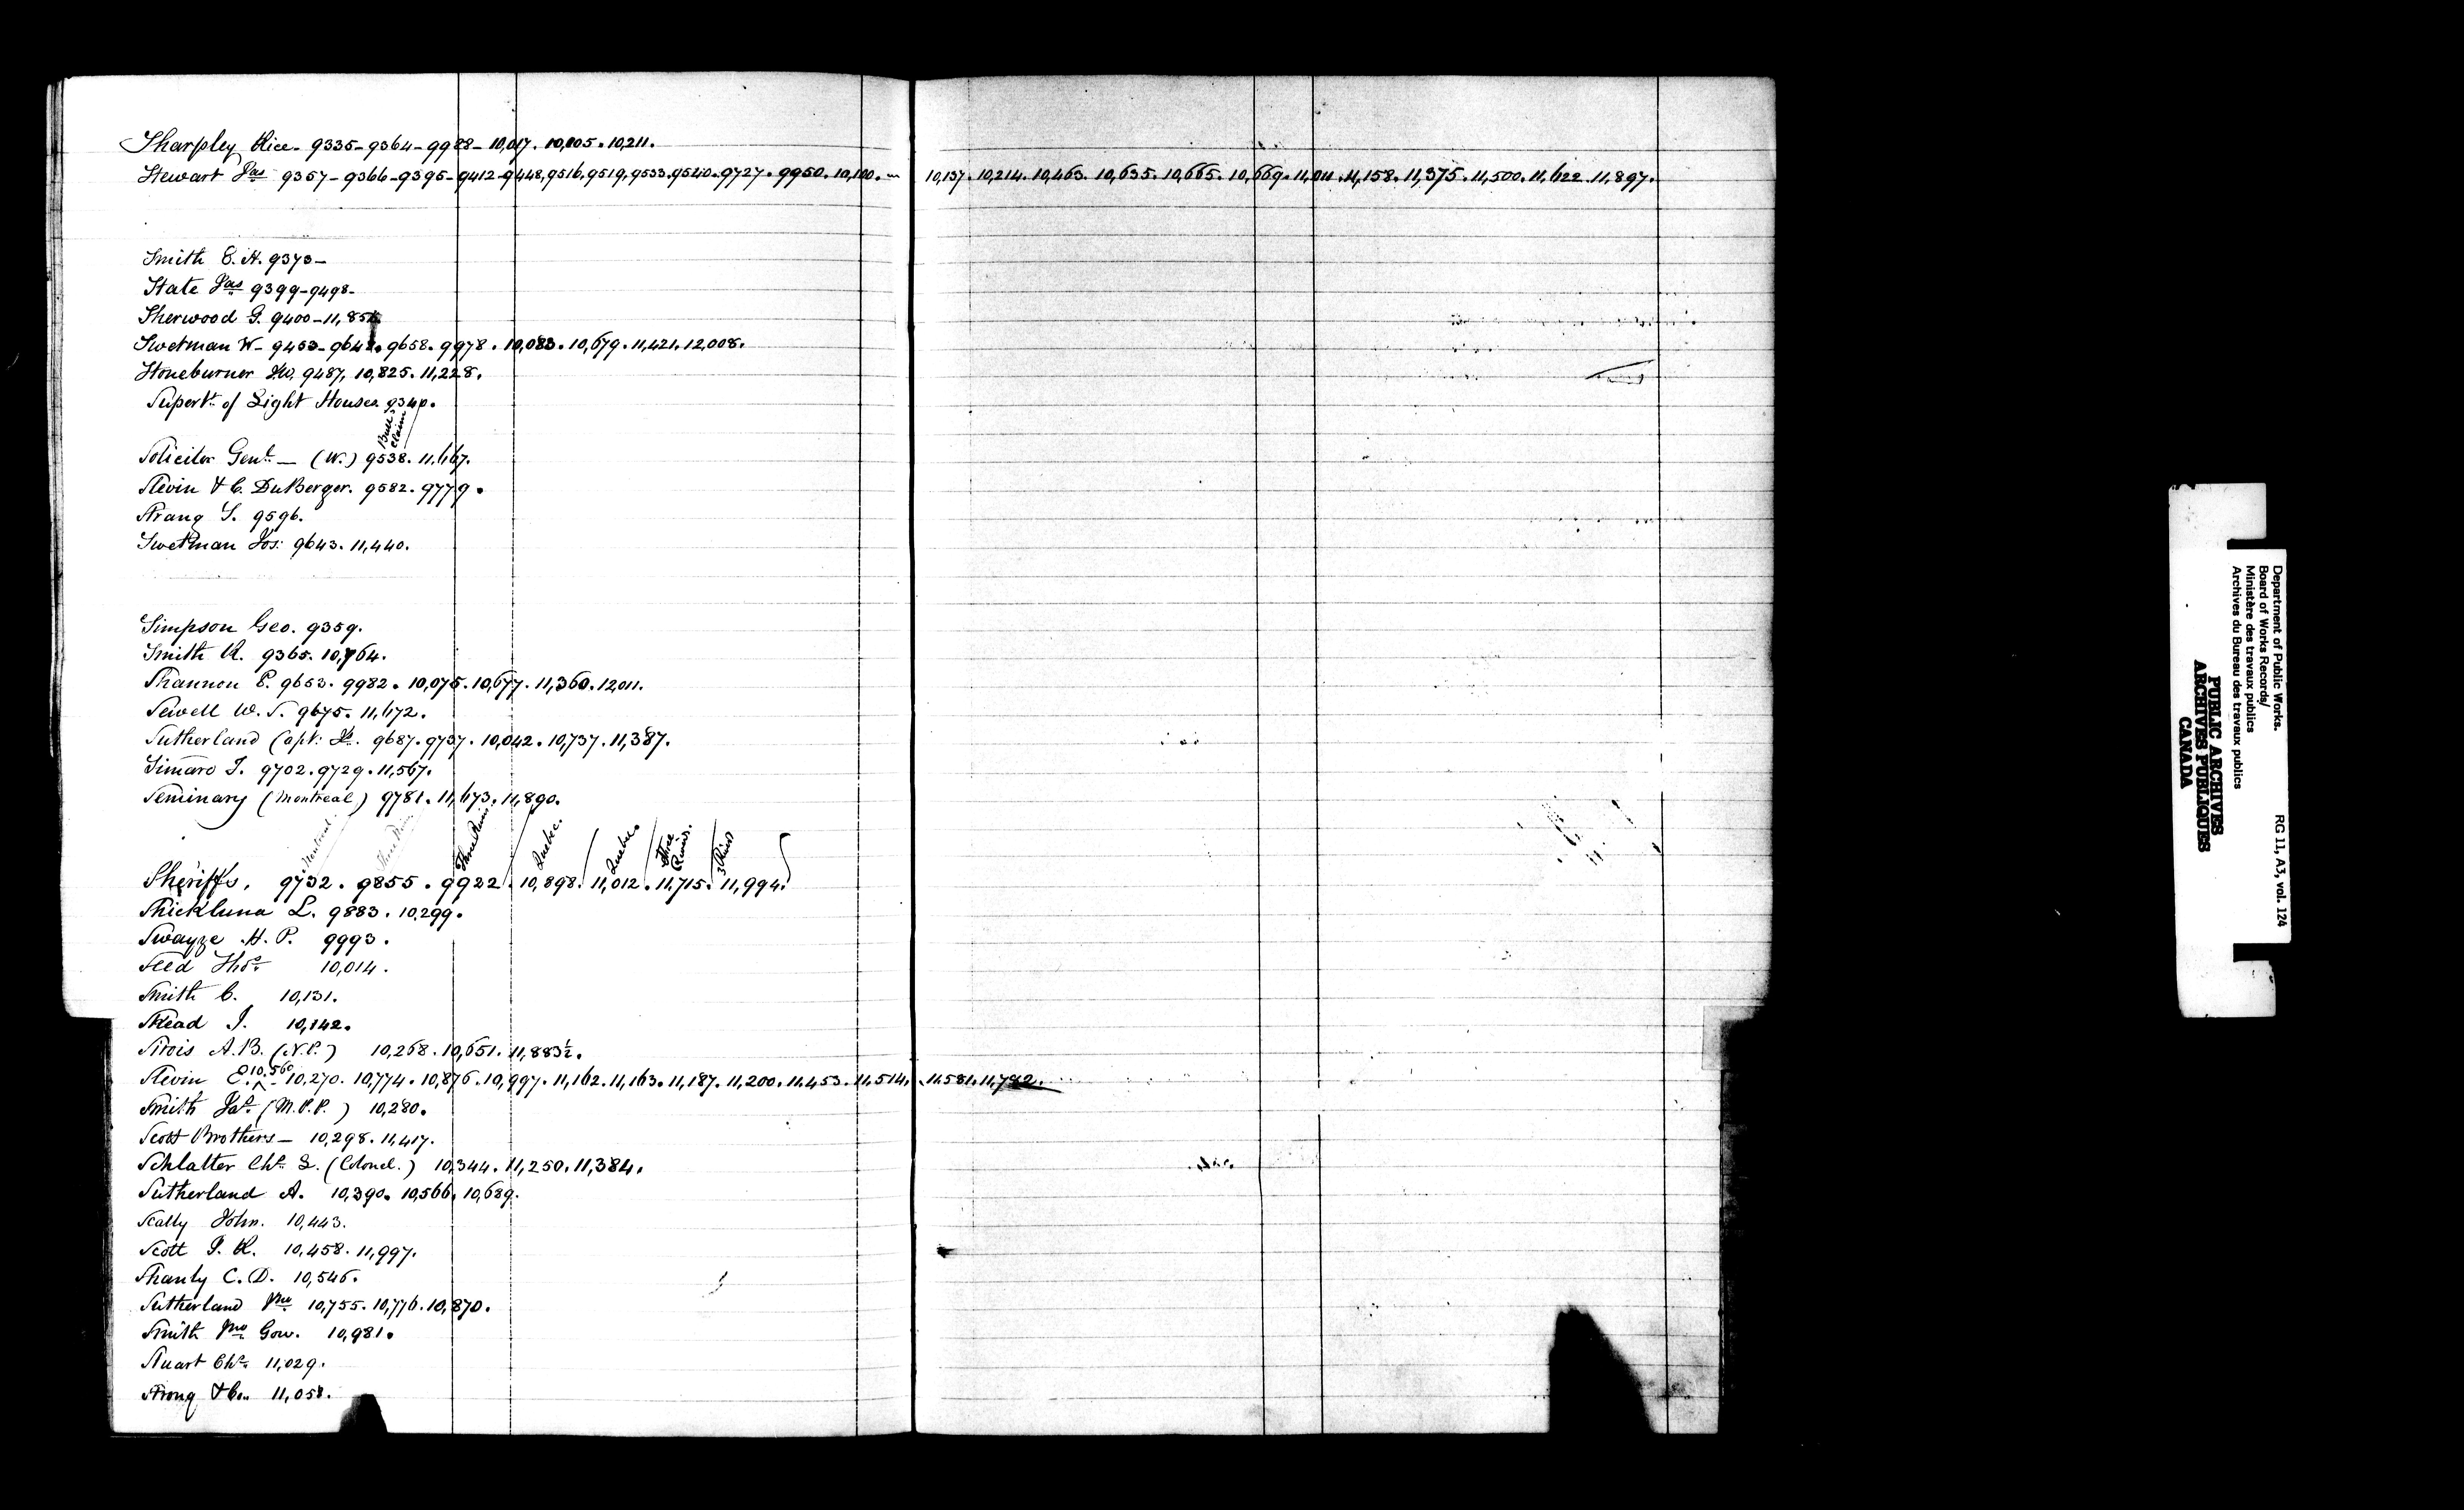 Sharpley Rice - 9335 - 9364 - 9988 - 10,017. 10,105. 10,211.
Stewart Jas 9357 - 9366 - 9395 - 9412 - 9448, 9516, 9519, 9533. 9540. 9727. 9950. 10,100. 10,137. 10,214. 10,463. 10,635. 10,665. 10,669. 11,011. 11,158. 11,375. 11,500. 11,622. 11,897.
Smith E. H. 9373 -
State Jas 9399 - 9498 -
Sherwood G. 9400 - 11,85
Swetman W - 9453 - 9642. 9658. 9978. 10,083. 10,679. 11,421. 12,008.
Stoneburner 9487, 10,825. 11,228.
Supert. of Light Houses. 9340.
Bull Claim
Soliciter Genl. — (W.) 9538. 11,667.
Slevin & C. DuBerger. 9582. 9779.
Strang S. 9596.
Swetman Jos: 9643. 11,440.
Simpson Geo. 9359.
Smith R. 9365. 10,764.
Shannon P. 9653. 9982. 10,075. 10,677. 11,360. 12,011.
Sewell W. S. 9675. 11,672.
Sutherland Capt: 9687. 9737. 10,042. 10,737. 11,387.
Simard J. 9702. 9729. 11,567.
Seminary (Montreal) 9781. 11,673. 11,890.
Montreal. Three Rivers Three Rivers Quebec. Quebec. Three Rivers. 3 Rivers
Sheriffs, 9732. 9855. 9922. 10,898. 11,012. 11,715. 11,994.
Shickluna L. 9883. 10,299.
Swayze H. P. 9993.
Seed Thos. 10,014.
Smith C. 10,131.
Skead J. 10,142.
Sirois A. B. (N.P.) 10,268. 10,651. 11,883½.
Slevin E. 10,560 10,270. 10,774. 10,876. 10,997. 11,162. 11,163. 11,187. 11,200. 11,453. 11,514. 11,581. 11,782.
Smith Jas. (M.P.P.) 10,280.
Scott Brothers — 10,298. 11,417.
Schlatter Chs. L. (Colonel.) 10,344. 11,250. 11,384.
Sutherland A. 10,390. 10,566. 10,689.
Scally John. 10,443.
Scott T. R. 10,458. 11,997.
Shanly C. D. 10,546.
Sutherland Jno 10,755. 10,776. 10,870.
Smith Jno Gow. 10,981.
Stuart Chs. 11,029.
Strong & Co. 11,058.
Department of Public Works.
Board of Works Records/
Ministère des travaux publics
Archives du Bureau des travaux publics
RG 11, A3, vol. 124
PUBLIC ARCHIVES
ARCHIVES PUBLIQUES
CANADA